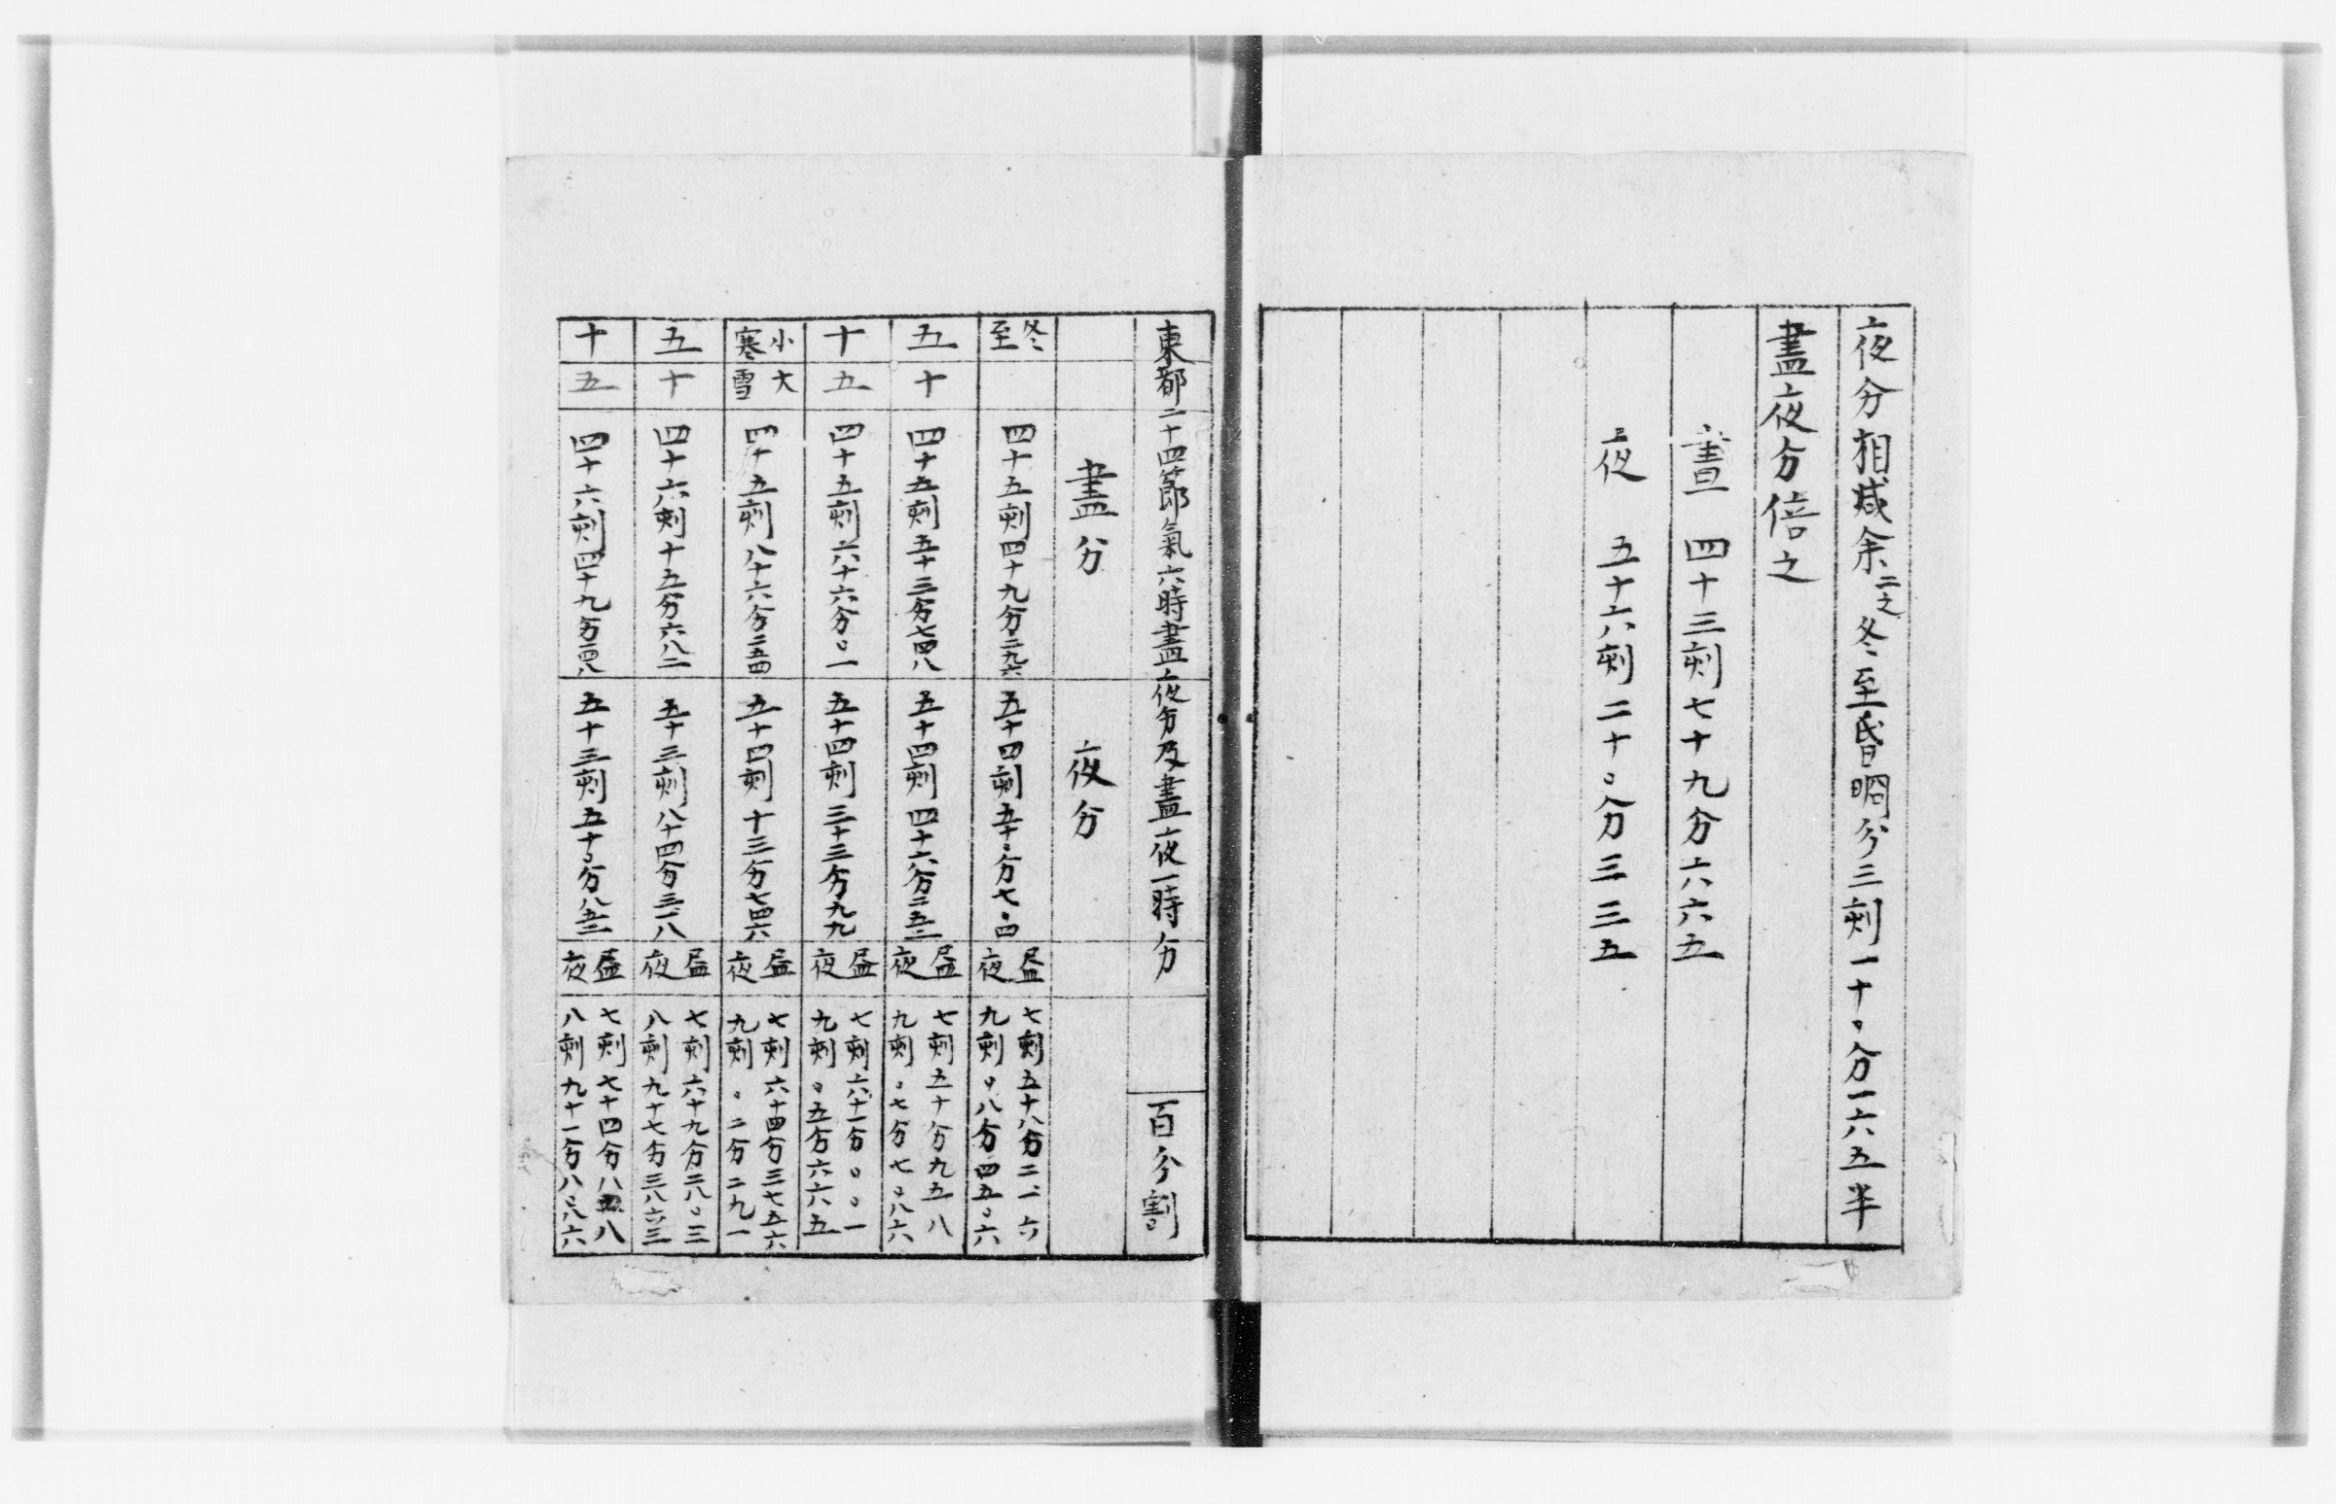 夜分相减余二之 冬至昏明分三刻一十〇分一六五半
盡夜分倍之
晝 四十三刻七十九分六六五
夜 五十六刻二十〇分三三五
東都二十四節氣六時盡夜分及盡夜一時分 百分割
盡分 夜分
冬至 四十五刻四十九分二九六 五十四刻五十〇分七〇四 昼 七刻五十八分二一六
夜 九刻〇八分四五〇六
五 十 四十五刻五十三分七四八 五十四刻四十六分二五二 昼 七刻五十分九五八
夜 九刻〇七分七〇八六
十 五 四十五刻六十六分〇一 五十四刻三十三分九九 昼 七刻六十一分〇〇一
夜 九刻〇五分六六五
小寒 大雪 四十五刻八十六分二五四 五十四刻十三分七四六 昼 七刻六十四分三七五六
夜 九刻〇二分二九一
五 十 四十六刻十五分六八二 五十三刻八十四分三一八 昼 七刻六十九分二八〇三
夜 八刻九十七分三八六三
十 五 四十六刻四十九分一四八 五十三刻五十〇分八五二 昼 七刻七十四分八五八
夜 八刻九十一分八〇八六